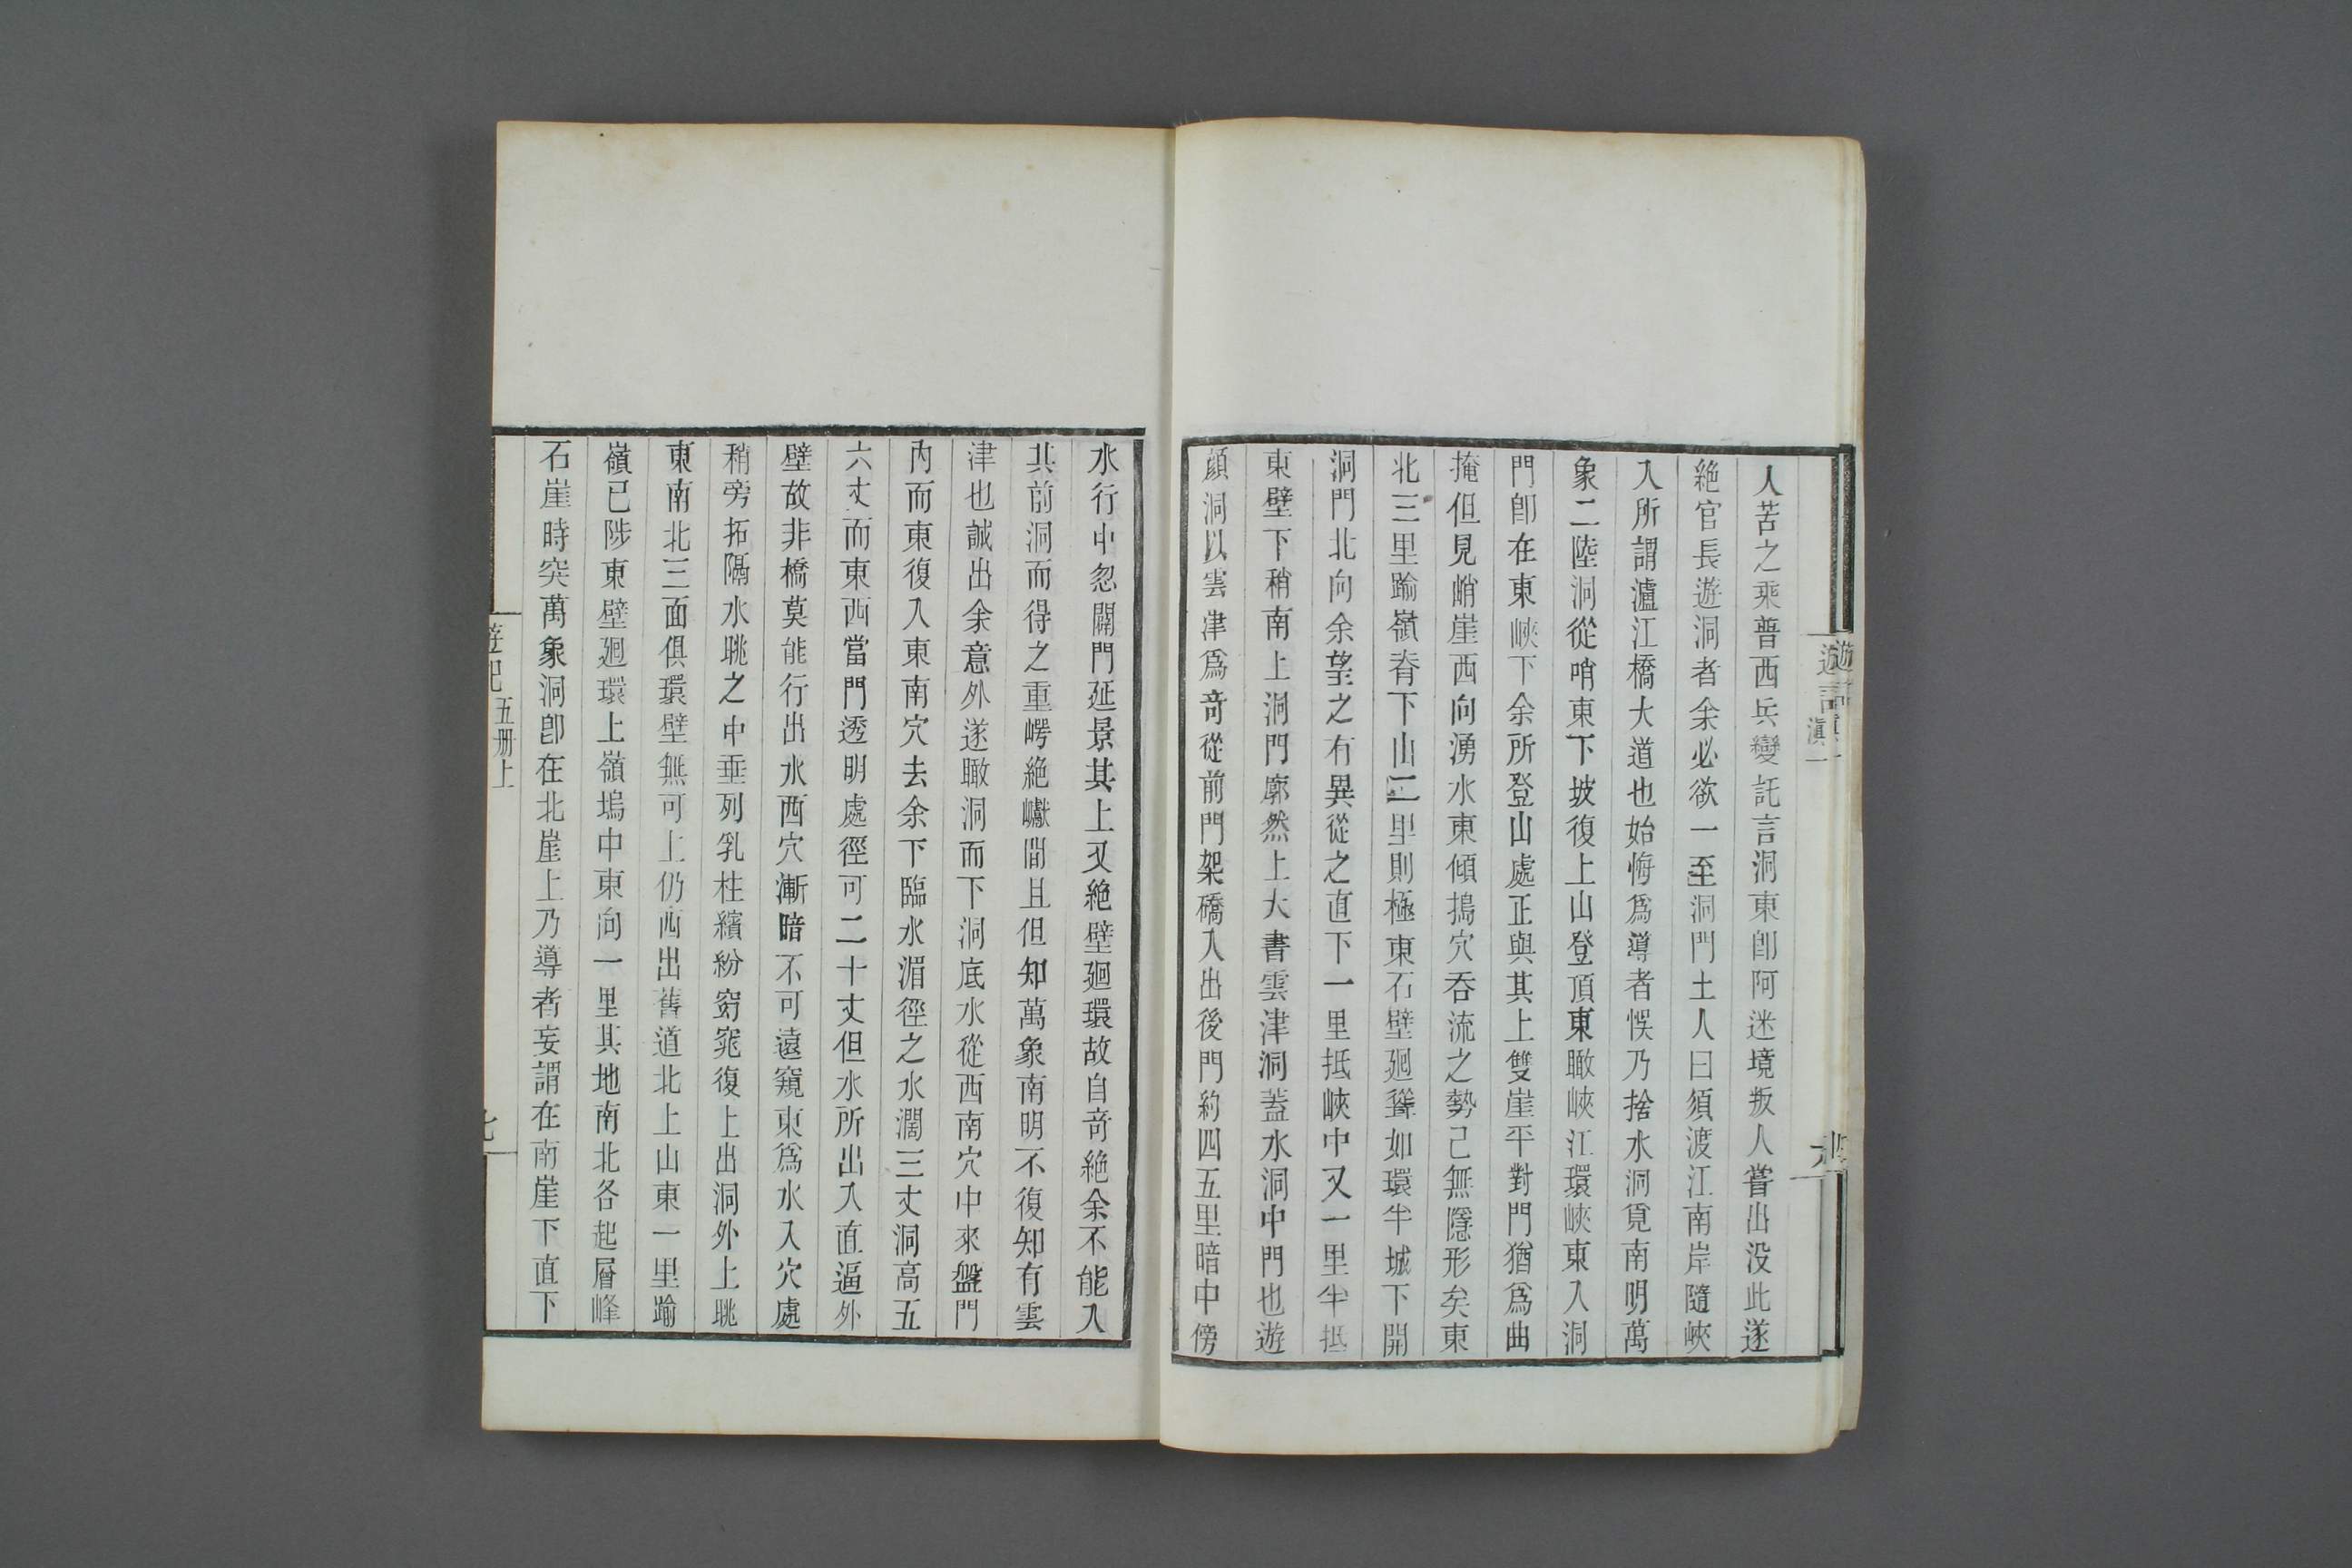 人苦之乘普西兵變託言洞東卽阿迷境叛人嘗出没此遂
絶官長遊洞者余必欲一至洞門土人曰須渡江南岸隨峽
入所謂瀘江橋大道也始悔爲導者悞乃捨水洞覓南明萬
象二陸洞從哨東下坡復上山登頂東瞰峽江環峽東入洞
門卽在東峽下余所登山處正與其上雙崖平對門猶爲曲
掩但見峭崖西向湧水東傾搗穴吞流之勢已無隱形矣東
北三里踰嶺脊下山二里則極東石壁廻聳如環半城下開
洞門北向余望之有異從之直下一里抵峽中又一里半抵
東壁下稍南上洞門廓然上大書雲津洞蓋水洞中門也遊
顔洞以雲津爲奇從前門架橋入出後門約四五里暗中傍
水行中忽闢門延景其上又絶壁廻環故自奇絶余不能入
其前洞而得之重崿絶巘間且但知萬象南明不復知有雲
津也誠出余意外遂瞰洞而下洞底水從西南穴中來盤門
內而東復入東南穴去余下臨水湄徑之水濶三丈洞高五
六丈而東西當門透明處徑可二十丈但水所出入直逼外
壁故非橋莫能行出水西穴漸暗不可遠窺東爲水入穴處
稍旁拓隔水眺之中垂列乳柱繽紛窈窕復上出洞外上眺
東南北三面俱環壁無可上仍西出舊道北上山東一里踰
嶺已陟東壁廻環上嶺塢中東向一里其地南北各起層峰
石崖時突萬象洞卽在北崖上乃導者妄謂在南崖下直下
遊記 五册上